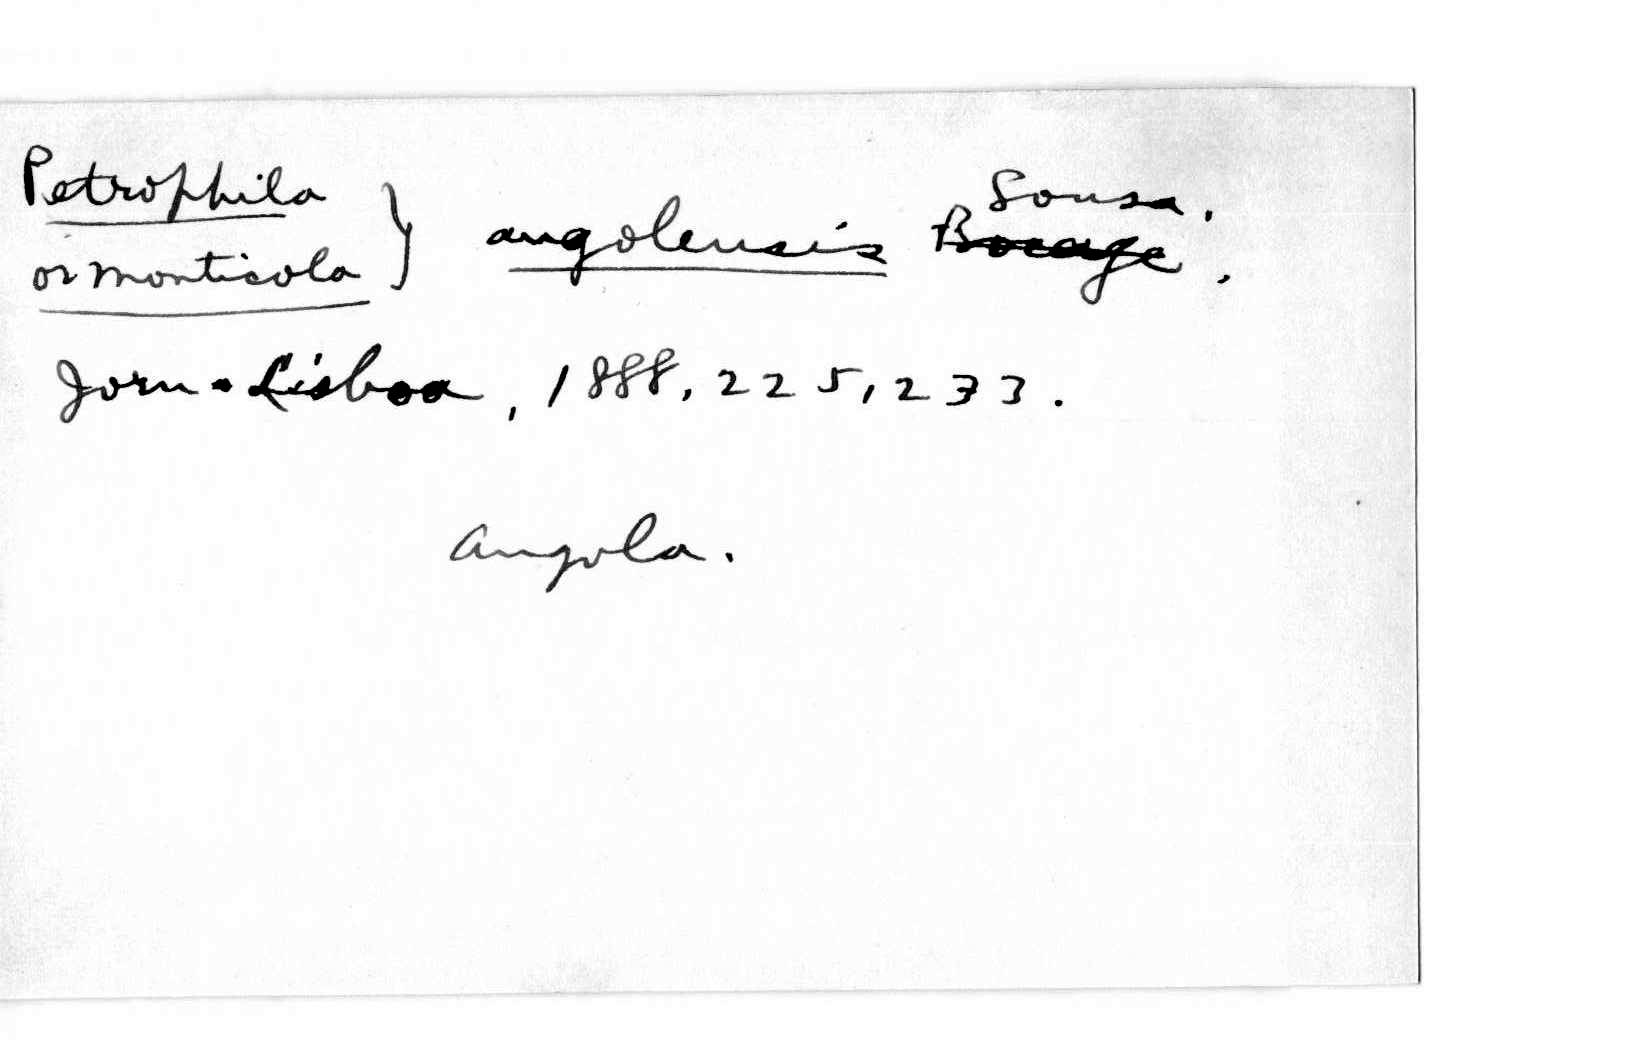 Petrophila
or monticola } angolensis Bocage Sousa.
Jorn. Lisboa, 1888, 225, 233.
Angola.